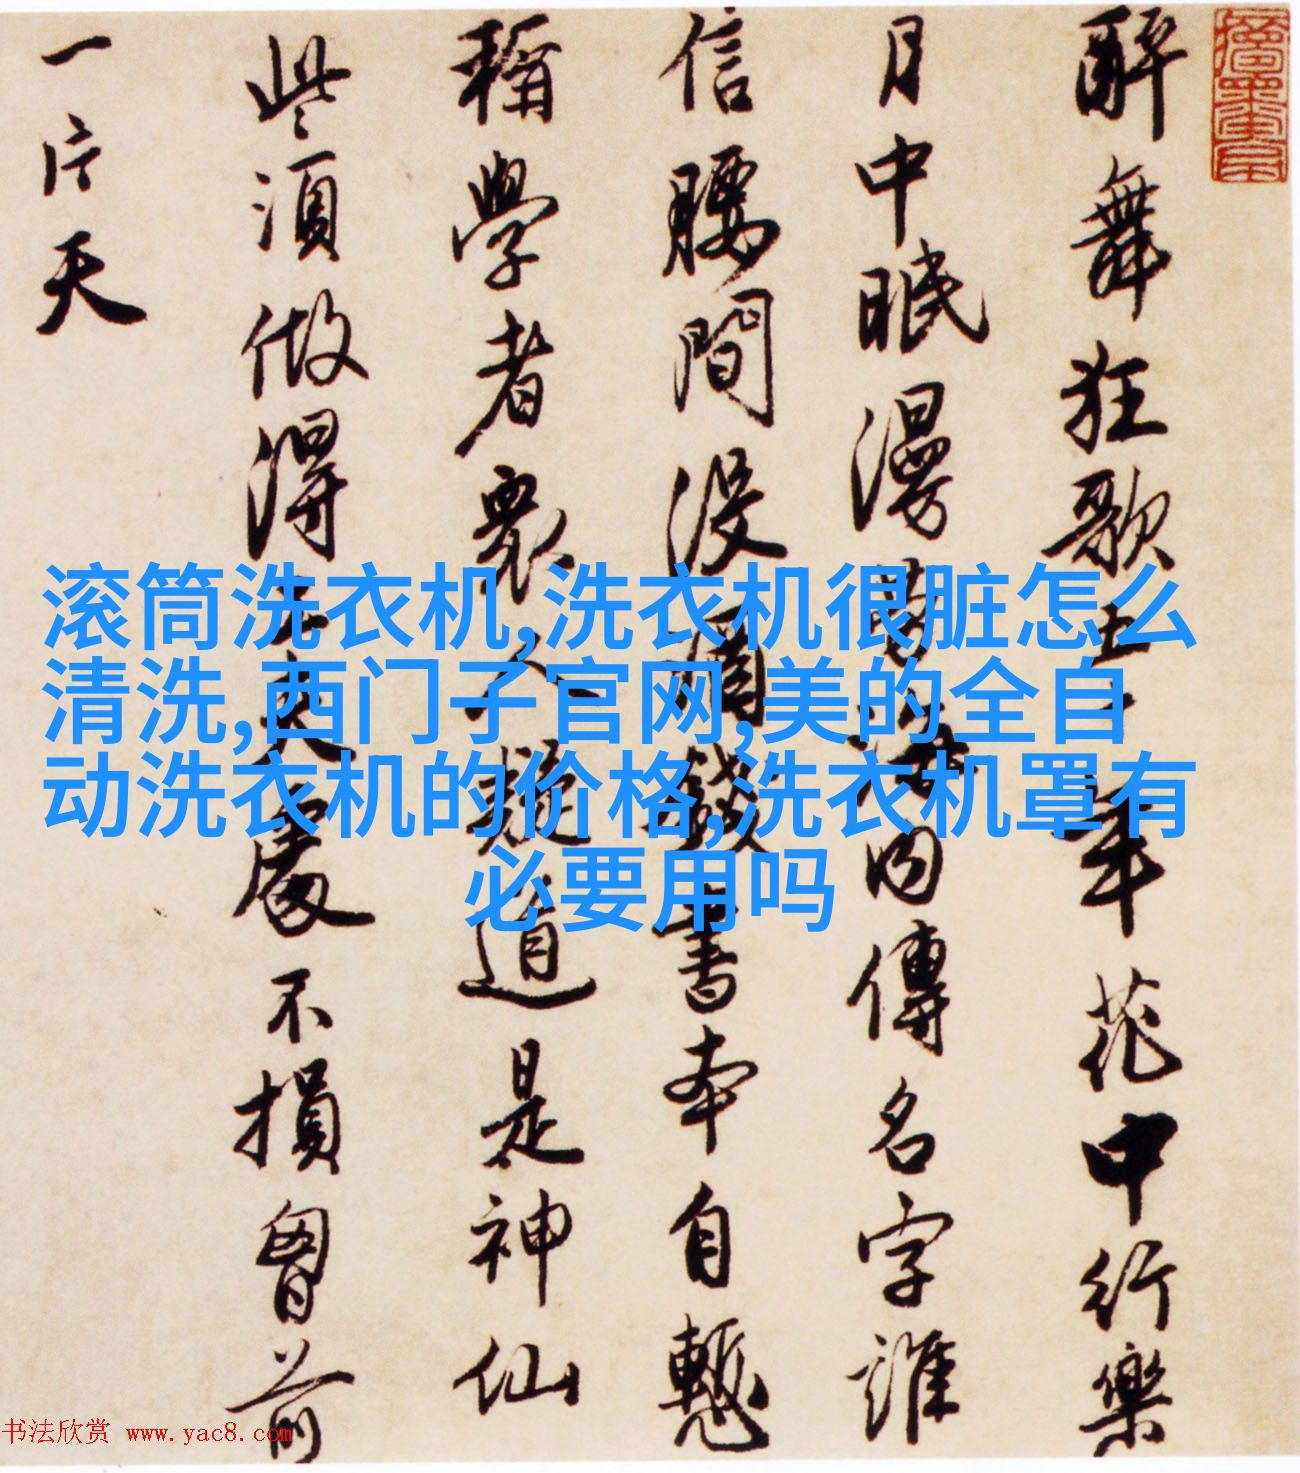 醉舞狂歌五十年花中行樂
月中眠漫勞海内傳名字誰
信腰間没酒錢書本自慙
稱學者衆人疑道是神仙
些須做得工夫處不損胷前
一片天
滚筒洗衣机,洗衣机很脏怎么
清洗,西门子官网,美的全自
动洗衣机的价格,洗衣机罩有
必要用吗
书法欣赏 www.yac8.com